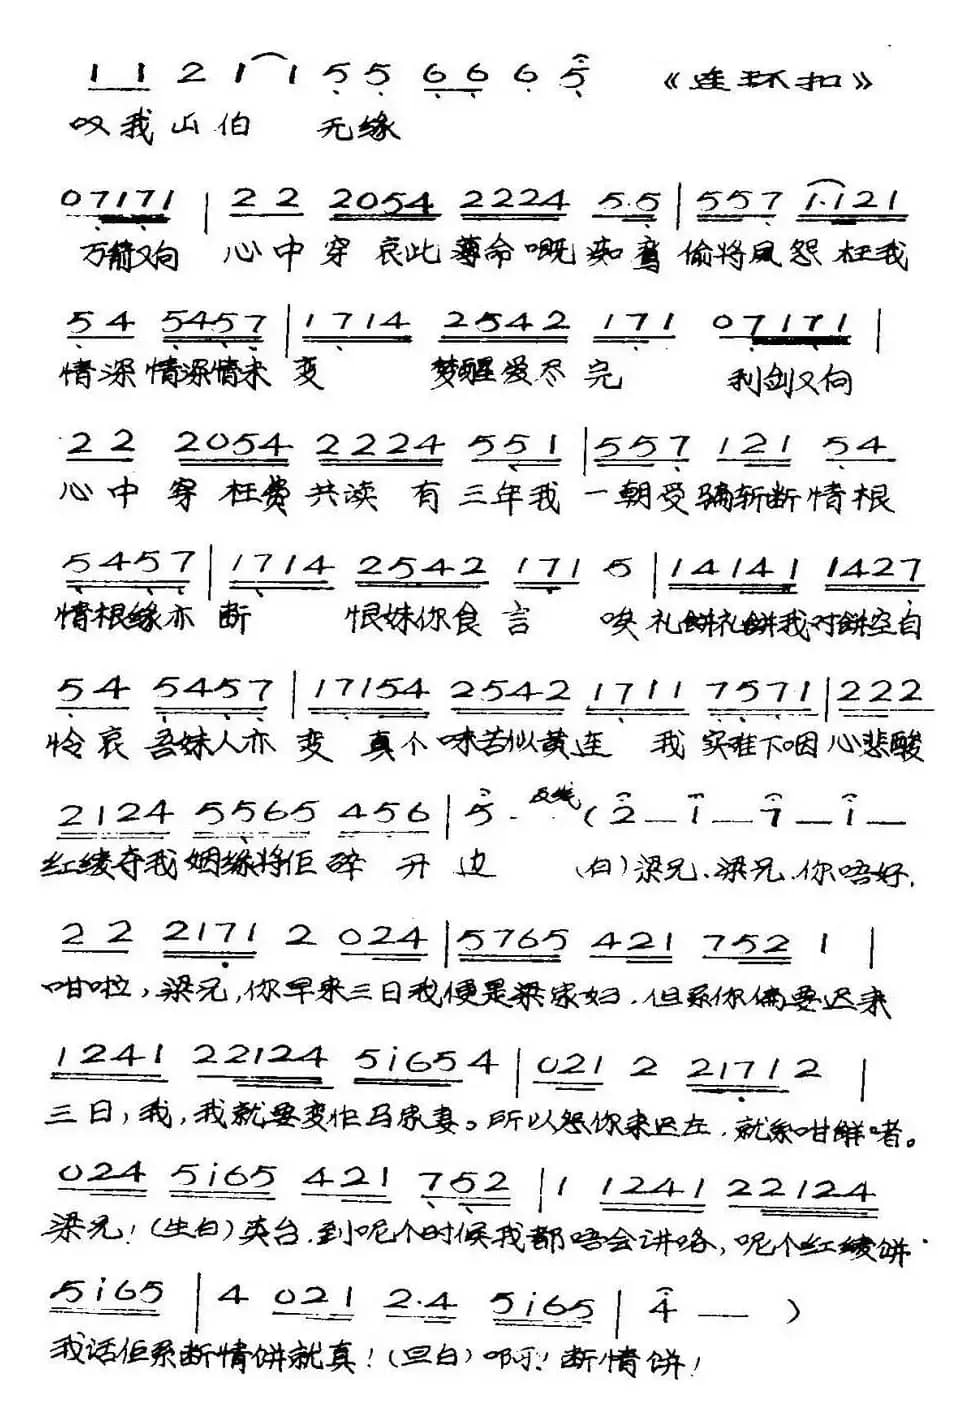 1 1 2 1 1 5 5 6 6 6 5 《连环扣》
叹我山伯 无缘
07171 | 2 2 2054 2224 5·5 | 557 1·121
万箭又向 心中穿 哀此薄命嘅痴鸾 偷将凤怨枉我
54 5457 | 1714 2542 171 07171 |
情深情深情未变 梦醒爱尽完 利剑又向
22 2054 2224 551 | 557 121 54
心中穿 枉费共读有三年我 一朝受骗斩断情根
5457 | 1714 2542 171 5 | 14141 1427
情根缘亦断 恨妹你食言 唉礼饼礼饼我对饼空自
54 5457 | 17154 2542 1711 7571 | 222
怜哀吾妹人亦变 真个味苦似黄连 我实难下咽心悲酸
2124 5565 456 | 5 - - 反线 (2 — 1 — 7 — 1 —
红绫夺我姻缘将佢碎开边 (白)梁兄、梁兄、你唔好,
22 2171 2 024 | 5765 421 752 1 |
咁啦, 梁兄,你早来三日我便是梁家妇,但系你偏要迟来
1241 22124 5i65 4 | 021 2 2171 2 |
三日,我,我就要变作马家妻。所以怨你来迟左,就系咁解啫。
024 5i65 421 752 | 1 1241 22124
梁兄!(生白)英台,到呢个时候我都唔会讲咯,呢个红绫饼
5i65 | 4 021 2·4 5i65 | 4 — — )
我话佢系断情饼就真!(旦白)啊!断情饼!